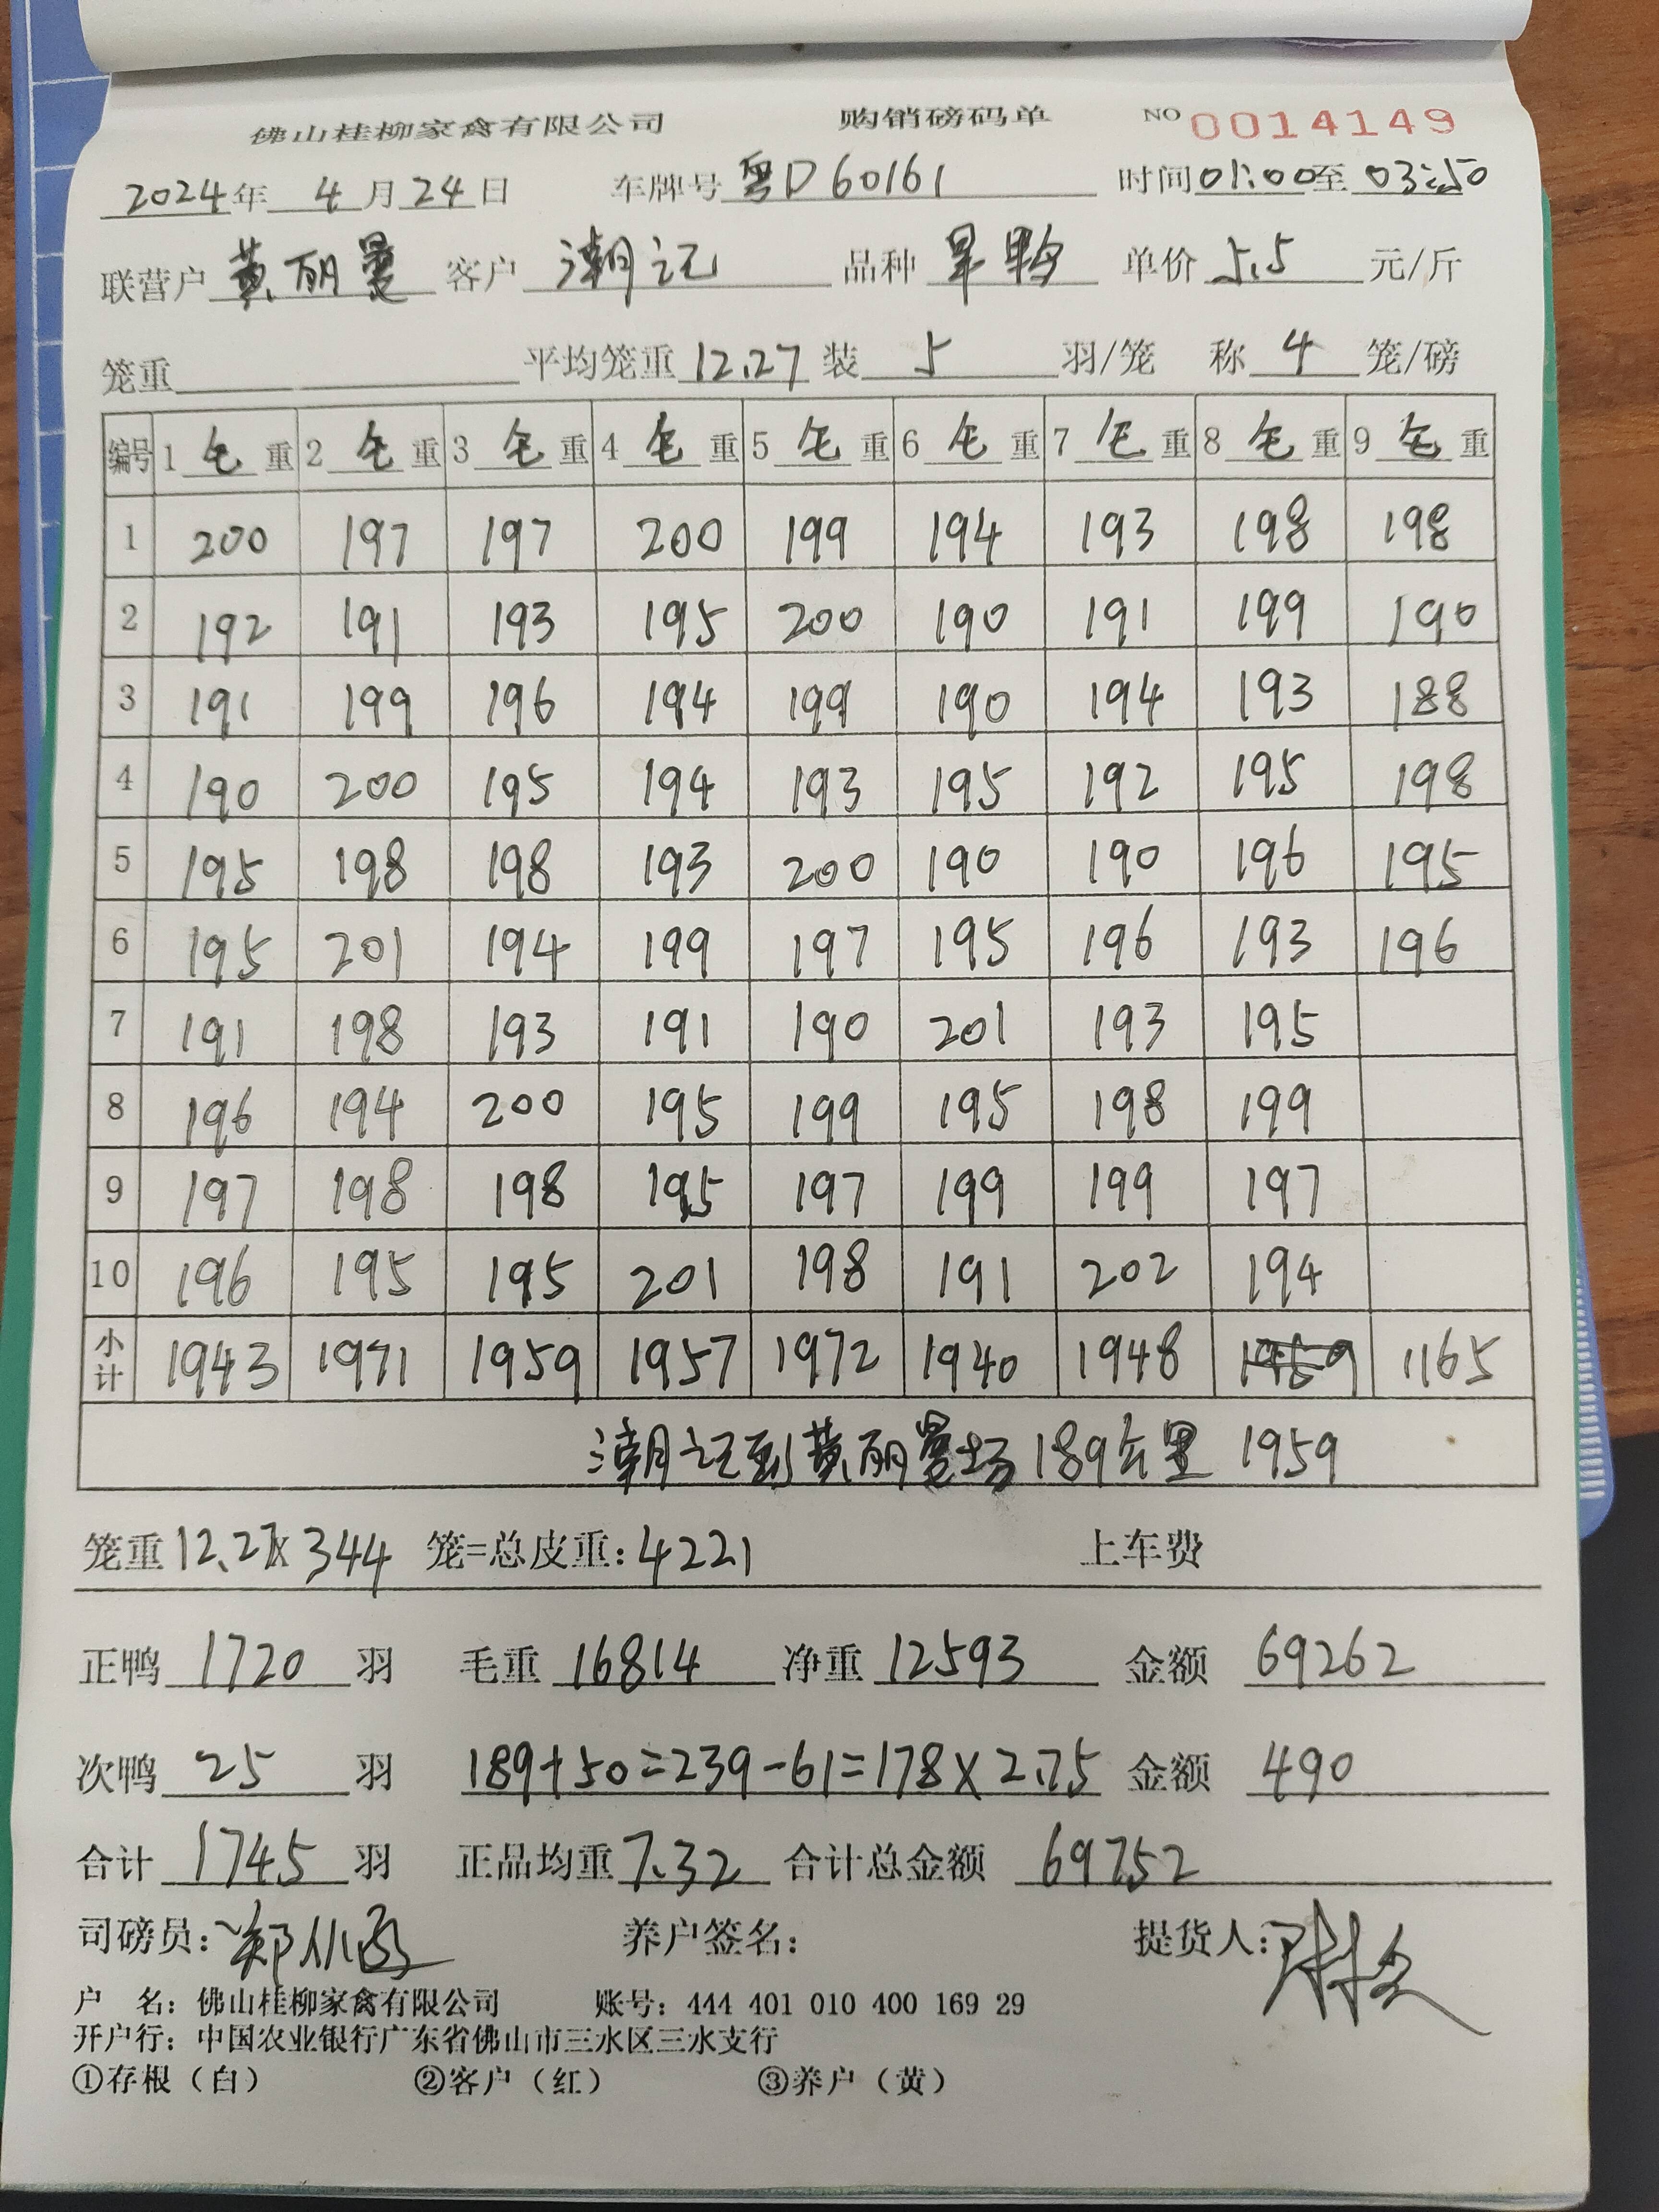 佛山桂柳家禽有限公司 购销磅码单 NO 0014149
2024年 4月24日 车牌号 粤D60161 时间01:00至 03:50
联营户 黄丽曼 客户 潮记 品种 旱鸭 单价 5.5 元/斤
笼重 平均笼重 12.27 装 5 羽/笼 称 4 笼/磅
编号 1 毛 重 2 毛 重 3 毛 重 4 毛 重 5 毛 重 6 毛 重 7 毛 重 8 毛 重 9 毛 重
1 200 197 197 200 199 194 193 198 198
2 192 191 193 195 200 190 191 199 190
3 191 199 196 194 199 190 194 193 188
4 190 200 195 194 193 195 192 195 198
5 195 198 198 193 200 190 190 196 195
6 195 201 194 199 197 195 196 193 196
7 191 198 193 191 190 201 193 195
8 196 194 200 195 199 195 198 199
9 197 198 198 195 197 199 199 197
10 196 195 195 201 198 191 202 194
小计 1943 1971 1959 1957 1972 1940 1948 1959 1165
潮记到黄丽曼场 189公里 1959
笼重 12.27x 344 笼=总皮重: 4221 上车费
正鸭 1720 羽 毛重 16814 净重 12593 金额 69262
次鸭 25 羽 189+50=239-61=178×2.75 金额 490
合计 1745 羽 正品均重 7.32 合计总金额 69752
司磅员: 养户签名: 提货人:
户 名: 佛山桂柳家禽有限公司 账号: 444 401 010 400 169 29
开户行: 中国农业银行广东省佛山市三水区三水支行
①存根（白） ②客户（红） ③养户（黄）